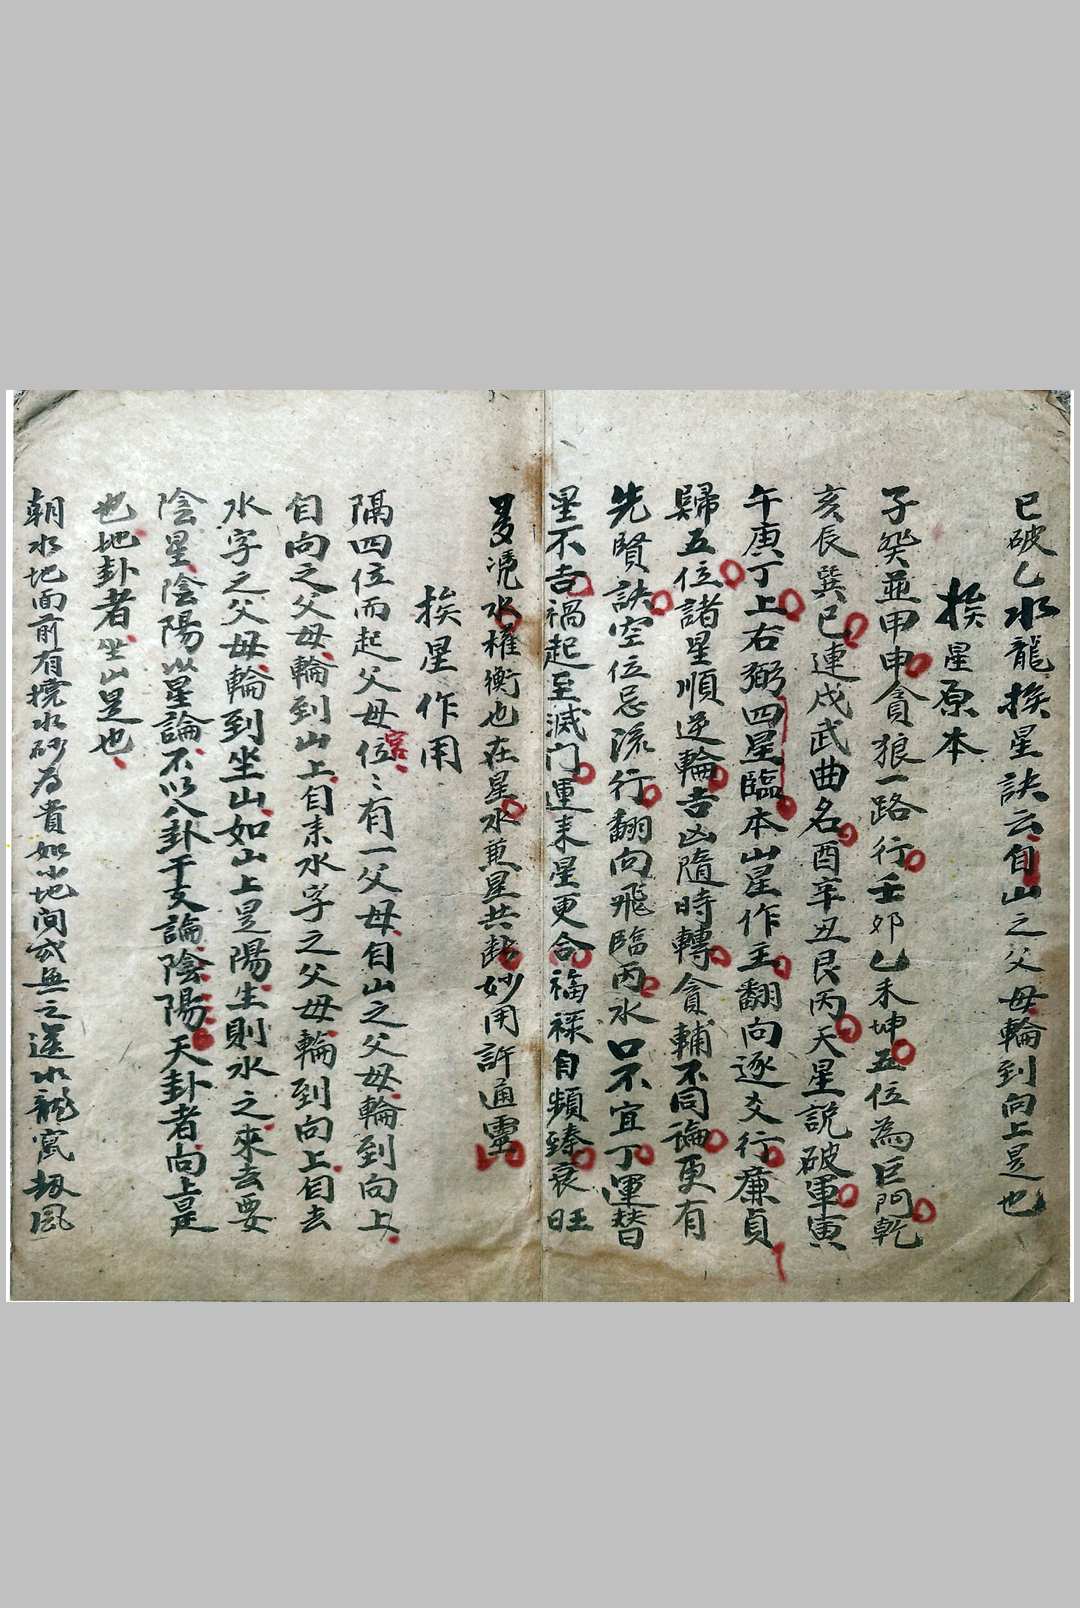 巳破乙水龍挨星訣云自山之父母輪到向上是也
挨星原本
子癸並甲申貪狼一路行壬卯乙未坤五位為巨門乾
亥辰巽巳連戌武曲名酉辛丑艮丙天星說破軍寅
午庚丁上右弼四星臨本山星作主翻向逐爻行廉貞
歸五位諸星順逆輪吉凶隨時轉貪輔不同論更有
先賢訣空位忌流行翻向飛臨丙水口不宜丁運替
星不吉禍起至滅门運來星更合福祿自頻臻衰旺
多凴水權衡也在星水兼星共斷妙用許通靈
挨星作用
隔四位而起父母位宮、有一父母自山之父母輪到向上
自向之父母輪到山上自来水字之父母輪到向上自去
水字之父母輪到坐山如山上是陽生則水之來去要
陰星陰陽以星論不以八卦干支論陰陽天卦者向上是
也地卦者坐山是也
朝水地面前有撓水砂為貴如水地间或無之送水龍窩扱風